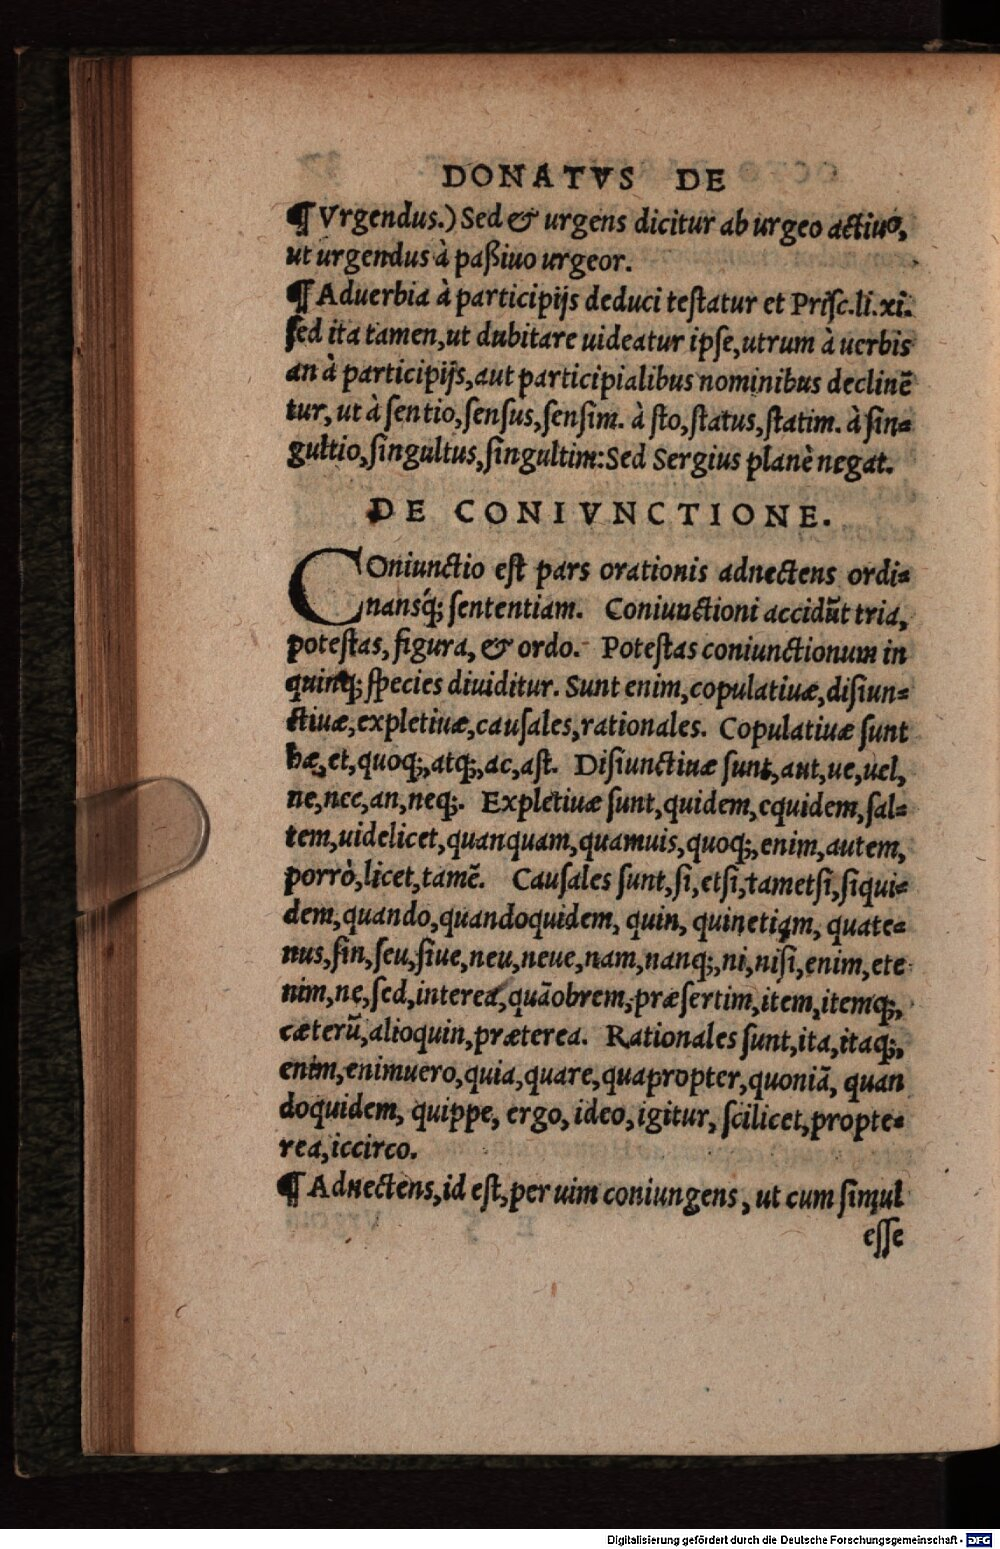 DONATVS DE
¶ Vrgendus.) Sed & urgens dicitur ab urgeo actiuo,
ut urgendus à paßiuo urgeor.
¶ Aduerbia à participijs deduci teſtatur et Priſc.li.xi.
ſed ita tamen,ut dubitare uideatur ipſe,utrum à uerbis
an à participijs,aut participialibus nominibus declinē
tur, ut à ſentio,ſenſus,ſenſim. à ſto,ſtatus,ſtatim. à ſin=
gultio,ſingultus,ſingultim:Sed Sergius planè negat.
DE CONIVNCTIONE.
COniunctio eſt pars orationis adnectens ordi=
nansq́; ſententiam. Coniunctioni accidūt tria,
poteſtas, figura, & ordo. Poteſtas coniunctionum in
quinq; ſpecies diuiditur. Sunt enim,copulatiuæ,diſiun=
ctiuæ,expletiuæ,cauſales,rationales. Copulatiuæ ſunt
hæ,et,quoq;,atq;,ac,aſt. Diſiunctiuæ ſunt,aut,ue,uel,
ne,nec,an,neq;. Expletiuæ ſunt,quidem,equidem,ſal=
tem,uidelicet,quanquam,quamuis,quoq;,enim,autem,
porrò,licet,tamē. Cauſales ſunt,ſi,etſi,tametſi,ſiqui=
dem,quando,quandoquidem, quin, quinetiam, quate=
nus,ſin,ſeu,ſiue,neu,neue,nam,nanq;,ni,niſi,enim,ete
nim,ne,ſed,interea,quāobrem,præſertim,item,itemq;,
cæterū,alioquin,præterea. Rationales ſunt,ita,itaq;,
enim,enimuero,quia,quare,quapropter,quoniā, quan
doquidem, quippe, ergo, ideo, igitur, ſcilicet,propte=
rea,iccirco.
¶ Adnectens,id eſt,per uim coniungens, ut cum ſimul
eſſe
Digitalisierung gefördert durch die Deutsche Forschungsgemeinschaft - DFG